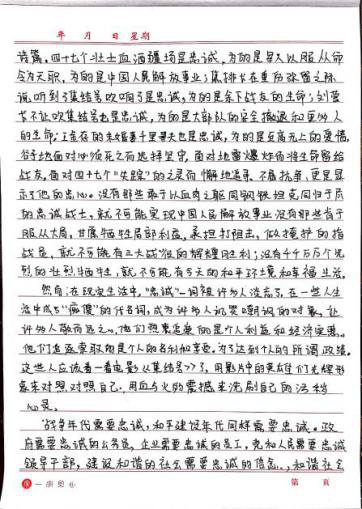 年 月 日 星期
诗篇。四十七个壮士血洒疆场是忠诚,为的是军人以服从命
令为天职,为的是中国人民解放事业;焦排长在重伤弥留之际
说听到了集结号吹响了是忠诚,为的是余下战友的生命;刘
不让吹集结号也是忠诚,为的是大部队的安全撤退和更多人
的生命;
谷子地面对冲锋死之而选择坚守,面对地雷爆炸而将生命留给
战友,面对四十七个“失踪”的之灵而懈地追寻,不屈抗争,更是显
示了他的忠心。没有那些敢于以血肉之躯同钢铁坦克同归于尽
的忠诚战士,就不可能实现中国人民解放事业,没有那些肯于
服从大局,甘愿牺牲局部利益,承担打阻击、做掩护的指
战员,就不可能有三大战役的辉煌胜利;没有千千万万个先
烈的壮烈牺牲,就不可能有今天的和平环境和幸福生活。
然而,在现实生活中,“忠诚”一词被许多人淡忘了,在一些人生
活中成了“痴傻”的代名词,成为许多人讥笑嘲讽的对象,让
许多人敬而远之。他们热衷追求的是个人利益和经济实惠。
他们追逐索取的是个人的名利和享受。为了达到个人的所谓政绩
这些人应该看一看电影《集结号》了,用影片中的英雄们光辉形
象来对照对照自己,用血与火的震撼来洗刷自己的污秽
心灵。
战争年代需要忠诚,和平建设年代同样需要忠诚。政
府需要忠诚的公务员,企业需要忠诚的员工,党和人民需要忠诚
领导干部,建设和谐的社会需要忠诚的信念。,和谐社会
第 页